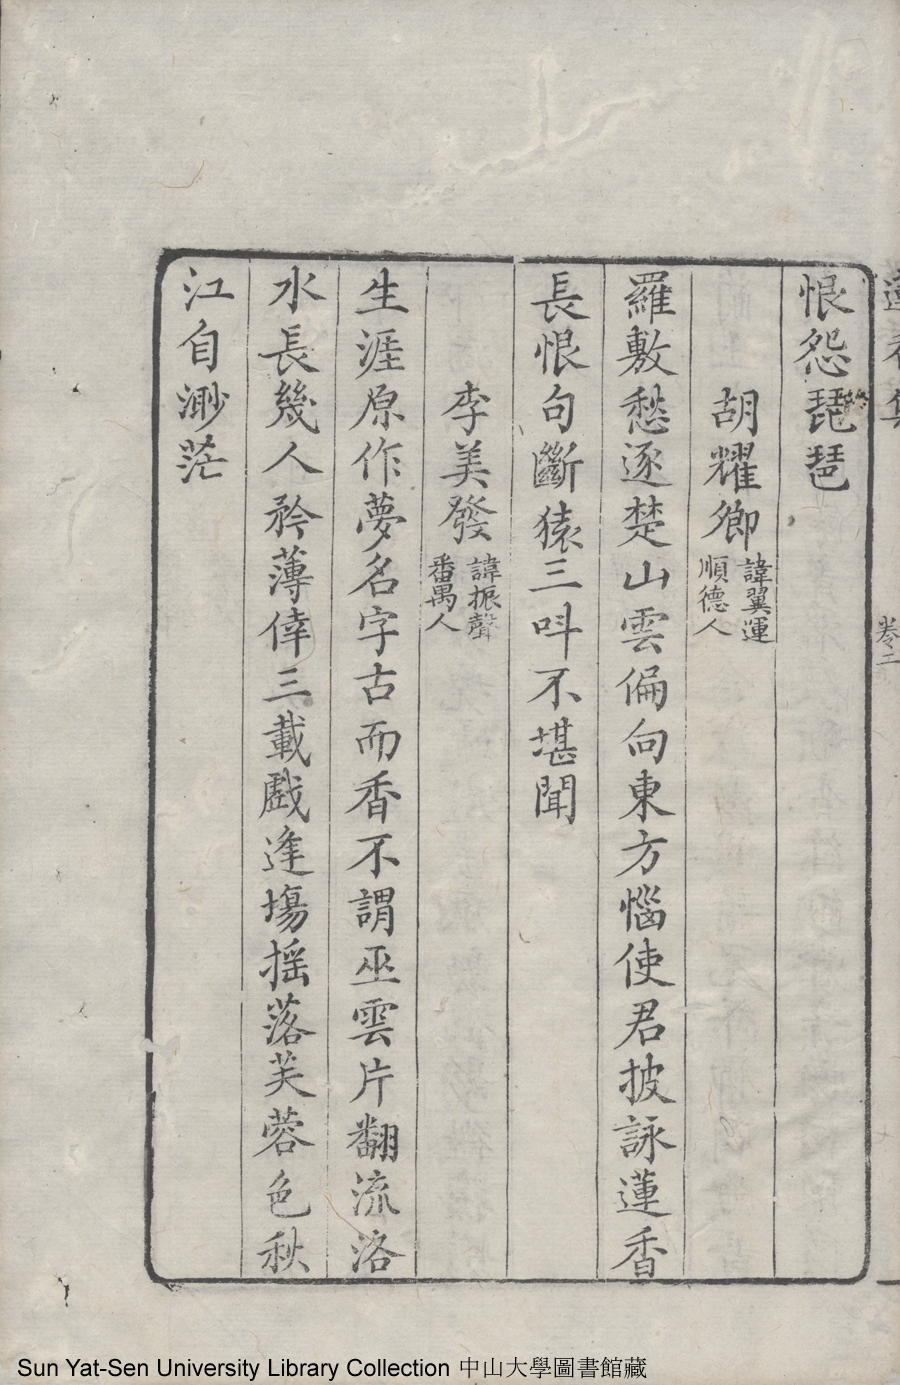 蓮香集
卷二
恨怨琵琶
胡耀卿 諱翼運 順德人
羅敷愁逐楚山雲偏向東方惱使君披詠蓮香
長恨句斷猿三呌不堪聞
李美發 諱振聲 番禺人
生涯原作夢名字古而香不謂巫雲片翻流洛
水長幾人矜薄倖三載戲逢塲摇落芙蓉色秋
江自渺茫
Sun Yat-Sen University Library Collection 中山大學圖書館藏